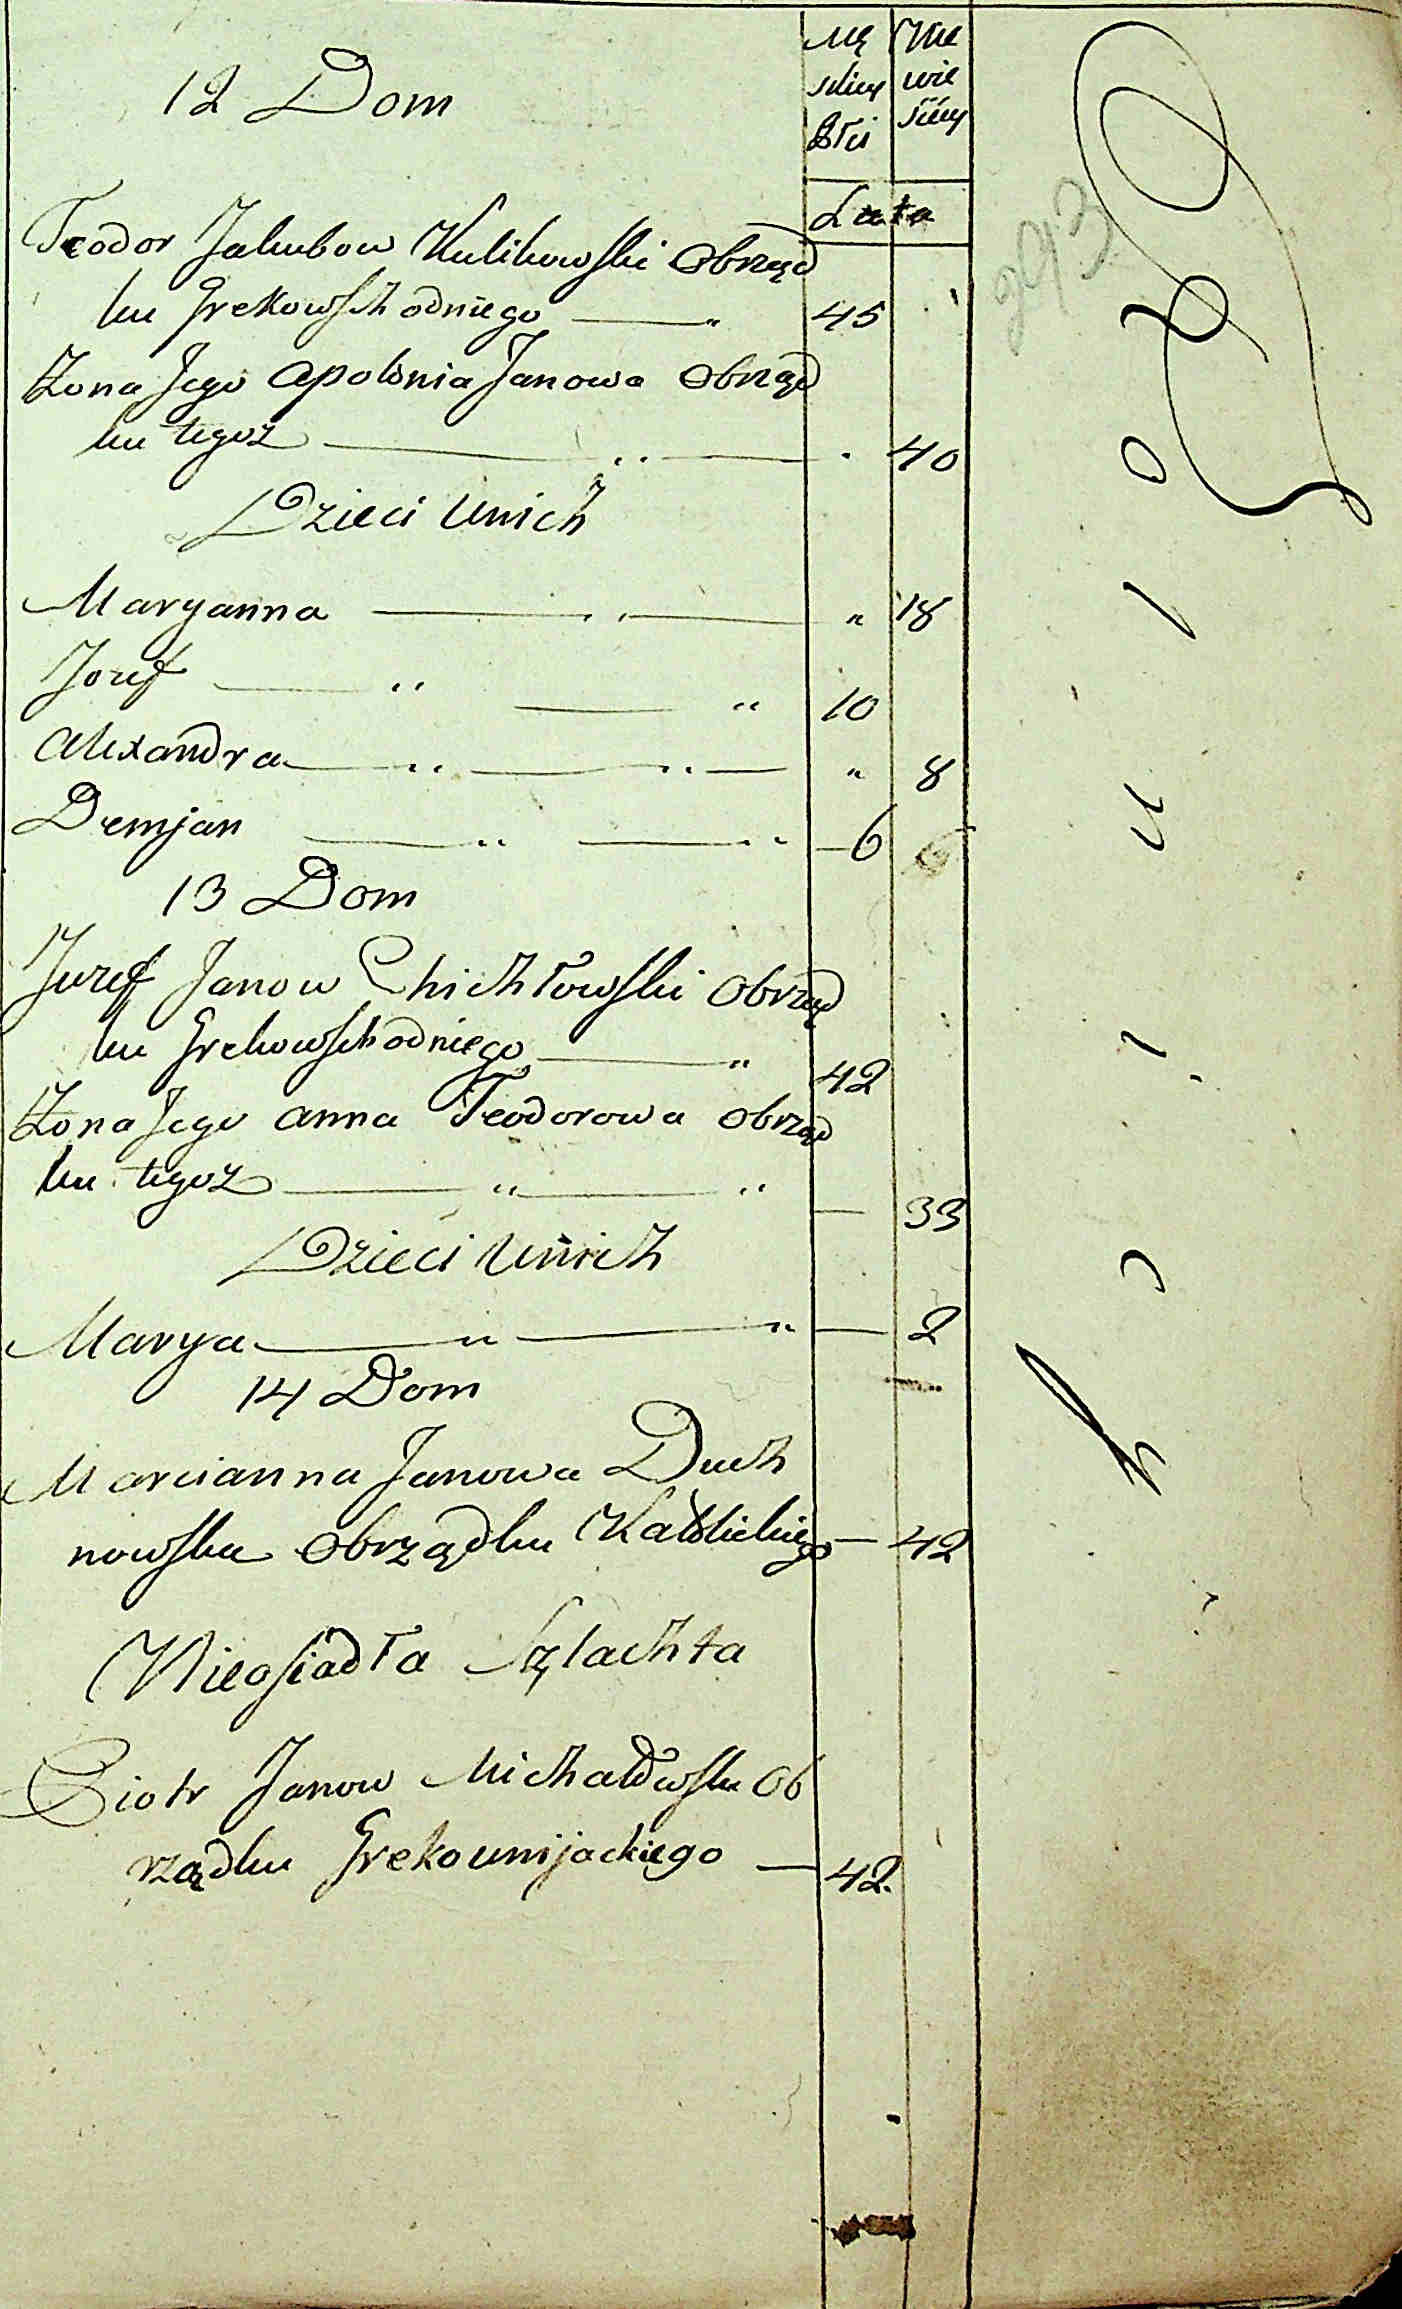 Mę Nie
skiey wie
Płci śćiey
12 Dom
Lata
Teodor Jakubow Kulikowski Obrząd
ku Grekowschodniego — " 45
Żona Jego Apolonia Janowa Obrząd
ku tegoż — " — . 40
Dzieci unich
Maryanna — " — " 18
Jozef — " — " 10
Alexandra — " — " — " 8
Demjan — " — " — 6
13 Dom
Jozef Janow Chichłowski Obrząd
ku Grekowschodniego — " 42
Żona Jego Anna Teodorowa Obrząd
ku tegoż — " — " — 33
Dzieci unich
Marya — " — " — 2
14 Dom
Marcianna Janowa Duch
nowska Obrządku Katolickiego — 42
Nieosiadła Szlachta
Piotr Janow Michałowski Ob
rządku Grekounijackiego — 42.
293